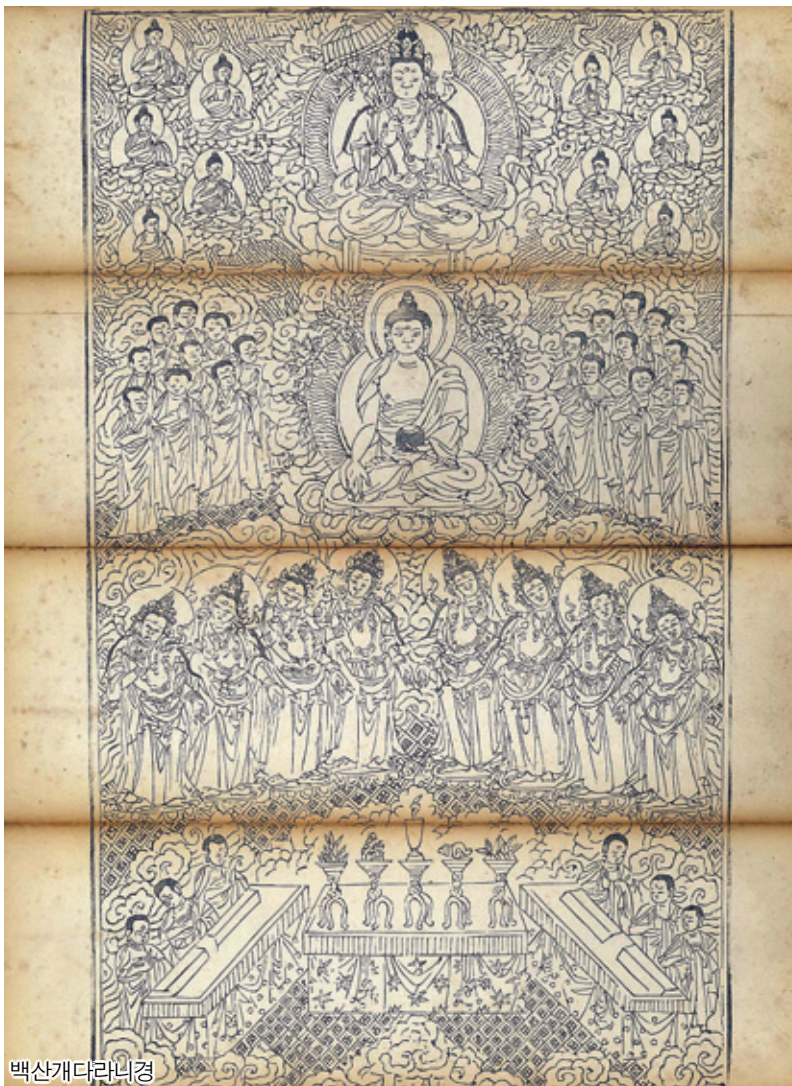 백산개다라니경